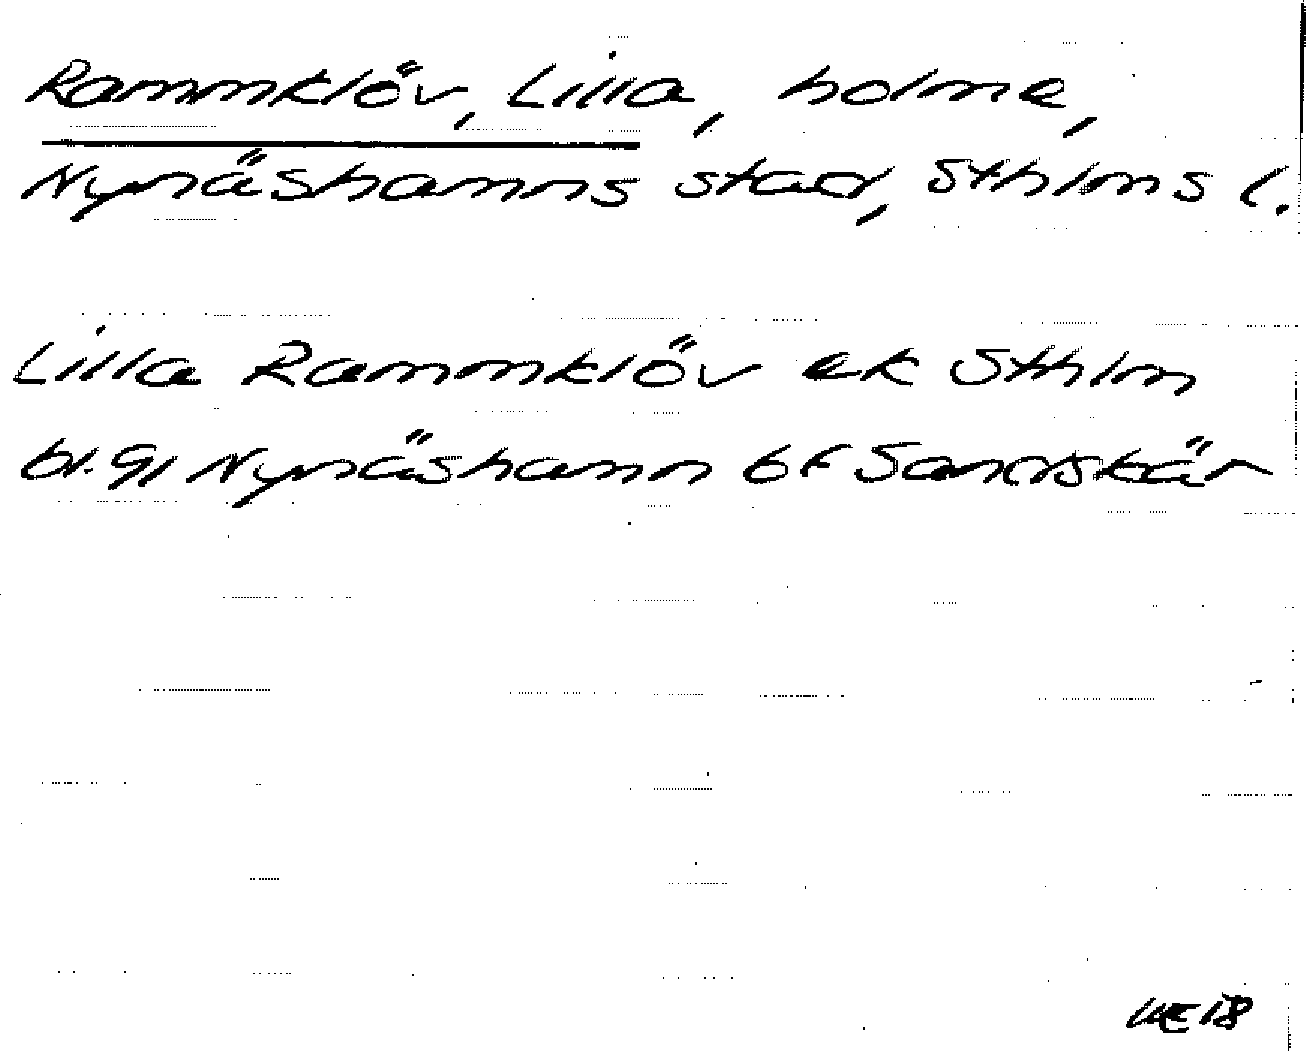 Rammklöv, Lilla, holme,
Nynäshamns stad, Sthlms l.
Lilla Rammklöv ek Sthlm
bl. 91 Nynäshamn bf Sandskär